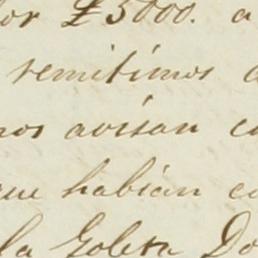 or £5000. a
remitimos
nos avisan co
que habían co
la Goleta Do